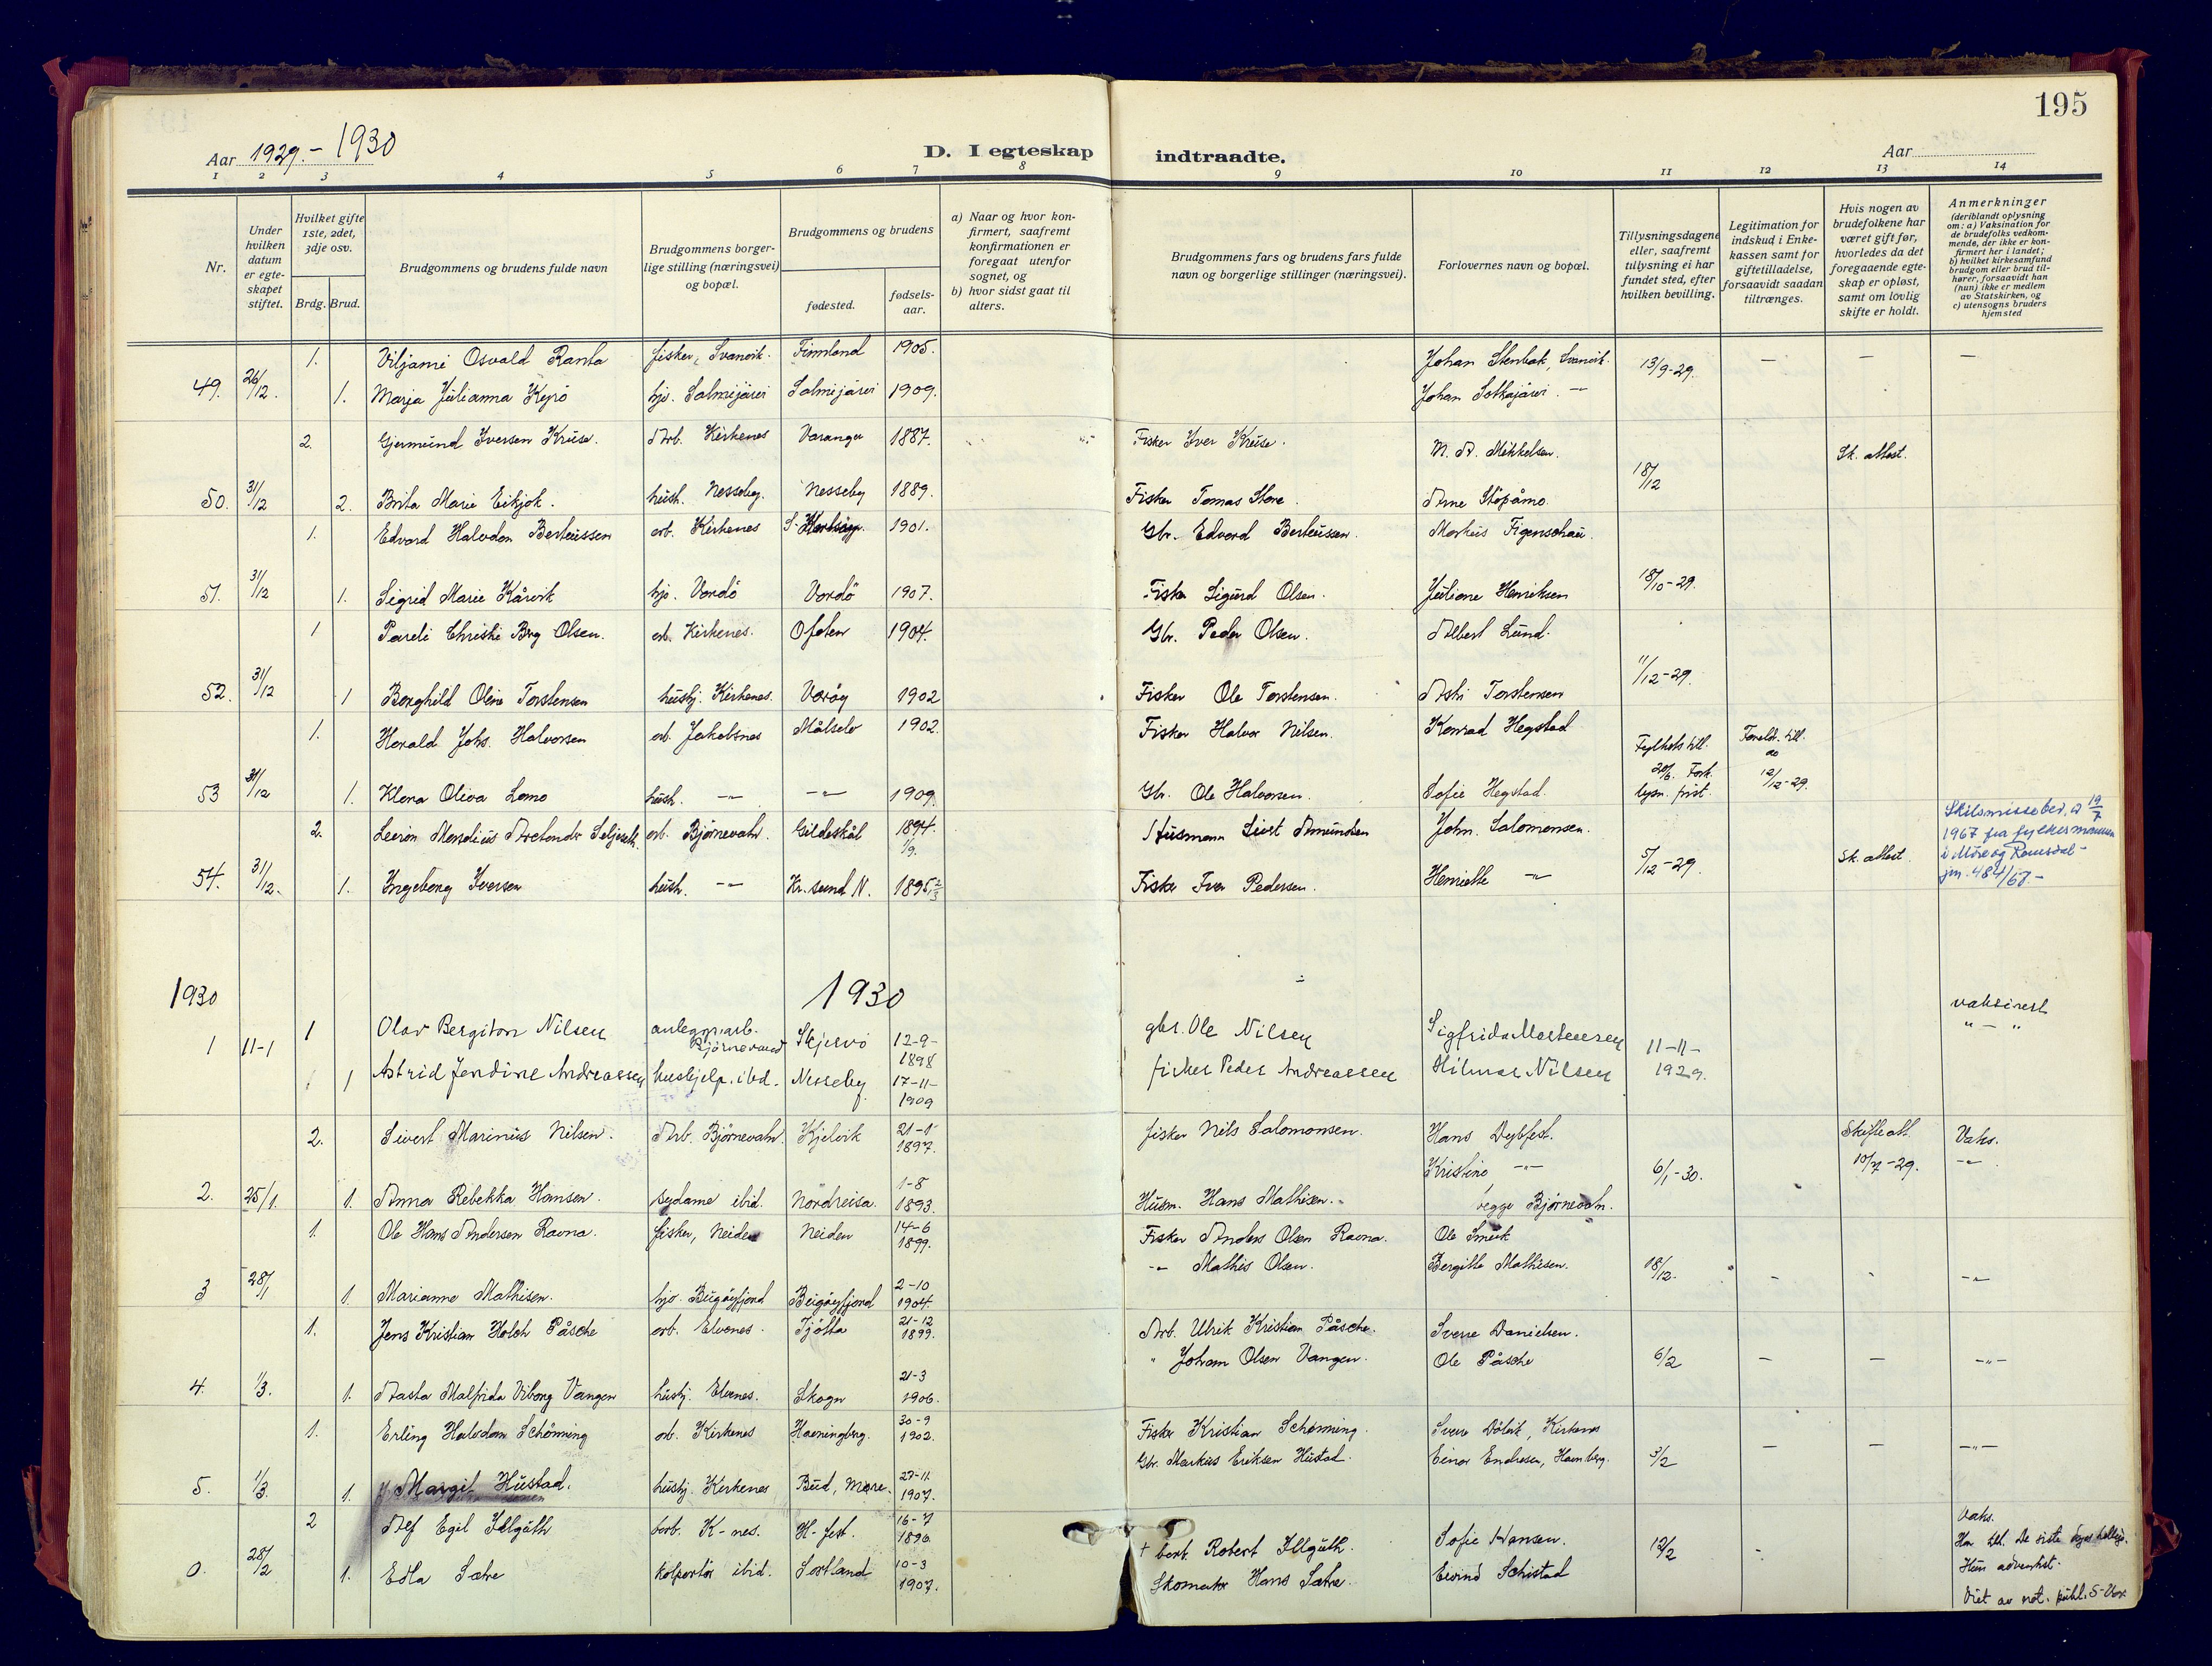 195
Aar 1929.- 1930
D. I egteskap indtraadte.
Aar
1 2 3 4 5 6 7 8 9 10 11 12 13 14
Nr.
Under hvilken datum er egteskapet stiftet.
Hvilket gifte 1ste, 2det, 3dje osv.
Brdg. Brud.
Brudgommens og brudens fulde navn
Brudgommens borgerlige stilling (næringsvei) og bopæl.
Brudgommens og brudens
fødested.
fødselsaar.
a) Naar og hvor konfirmert, saafremt konfirmationen er foregaat utenfor sognet, og
b) hvor sidst gaat til alters.
Brudgommens fars og brudens fars fulde navn og borgerlige stillinger (næringsvei).
Forlovernes navn og bopæl.
Tillysningsdagene eller, saafremt tillysning ei har fundet sted, efter hvilken bevilling.
Legitimation for indskud i Enkekassen samt for giftetilladelse, forsaavidt saadan tiltrænges.
Hvis nogen av brudefolkene har været gift før, hvorledes da det foregaaende egteskap er opløst, samt om lovlig skifte er holdt.
Anmerkninger (deriblandt oplysning om: a) Vaksination for de brudefolks vedkommende, der ikke er konfirmert her i landet; b) hvilket kirkesamfund brudgom eller brud tilhører, forsaavidt han (hun) ikke er medlem av Statskirken, og c) utensogns bruders hjemsted
1. Viljami Osvald Ranta fisker, Svanvik. Finnland 1905. Johan Stenbak, Svanvik. 13/9-29. — — —
49. 26/12. 1. Marja Julianna Kepö hjv. Salmijärvi Salmijärvi 1909. Johan Sotkajärvi. -"-
2. Gjermund Iversen Kruse. Arb. Kirkenes Varanger 1887. Fisker Iver Kruse. M. A. Mikkelsen. Sk. attest.
50. 31/12 2. Brita Marie Eikjok. hush. Nesseby. Nesseby 1889. Fisker Tomas Store. Arne Stöpåmo. 18/12
1. Edvard Halvdan Berteussen arb. Kirkenes 1901. Gbr. Edvard Berteussen. Markus Figenschau.
51. 31/12 1. Sigrid Marie Kårvik hjv. Vardö Vardö 1907. Fisker Sigurd Olsen. Juliane Henriksen 18/10-29.
1 Pareli Christie Berg Olsen. arb. Kirkenes. Ofoten 1904. Gbr. Peder Olsen. Albert Lund.
52. 31/12 1 Borghild Oline Torstensen hushj. Kirkenes. Veröy 1902 Fisker Ole Torstensen. Astri Torstensen 11/12-29.
1. Harald Johs. Halvorsen arb. Jakobsnes Målselv 1902. Fisker Halvor Nilsen. Konrad Hegstad Fylkets till. 20/6. Fork. lysn. frist. Foreldr. till. av 12/12-29.
53 31/12 1. Klara Oliva Lomo hush. -"- -"- 1909. Gbr. Ole Halvorsen. Sofie Hegstad.
2. arb. Bjørnevatn. Gildeskål 1894. 1/9. Husmann Sivert Amundsen John. Salomonsen. Skilsmissebev. a 19/7 1967 fra fylkesmannen i Møre og Romsdal - jnr. 484/67.-
54. 31/12. 1. Ingeborg Iversen hush. -"- Kr.sund N. 1895 Fisker Iver Pedersen. Henriette -"- 5/12-29. Sk. attest.
1930 1930
1 11-1 1 Olav Bergiton Nilsen anleggsarb. Bjørnevand Skjervø 12-9-1898 gbr. Ole Nilsen Sigfrida Mortensen 11-11-1929. vaksinert
1 Astrid Jendine Andreassen hushjelp. ibd. Nesseby 17-11-1909 fisker Peder Andreassen Hilmar Nilsen " - "
2. Sivert Marinus Nilsen. Arb. Bjørnevatn. Kjelvik 21-1 1897. fisker Nils Salomonsen. Hans Dybfest. Skifteatt. 10/7-29. Vaks.
2. 25/1. 1. Anna Rebekka Hansen. sydame ibid. Nordreisa. 1-8 1893. Husm. Hans Mathisen. Kristine -"- begge Bjørnevatn. 6/1-30. -"-
1. Ole Hans Andersen Ravna. fisker, Neiden Neiden 14-6 1899. Fisker Anders Olsen Ravna. Ole Smuk
3 28/1 1. Marianne Mathisen. hjv. Bugøyfjord Bugøyfjord 2-10 1904. -"- Mathis Olsen. Bergitte Mathisen. 18/12. - - -"-
1. Jens Kristian Holch Påsche arb. Elvenes. Tjøtta 21-12 1899. Arb. Ulrik Kristian Påsche. Sverre Danielsen.
4. 1/3. 1. Aasta Malfrida Viborg Vangen hushj. Elvenes. Skogn 21-3 1906. " Johan Olsen Vangen. Ole Påsche 6/2 — — -"-
1. Erling Halvdan Schönning arb. Kirkenes Havningberg. 30-9 1902. Fisker Kristian Schönning. Sverre Dölvik, Kirkenes
5. 1/3. 1. Margit Hustad. hushj. Kirkenes Bud, Møre. 27-11 1907. Gbr. Markus Eriksen Hustad. Einar Endresen, Havn.berg. 3/2 — — -"-
2 Alf Egil Illguth barb. K-nes. H-fest. 16-7 1896 + barb. Robert Illguth. Sofie Hansen. 12/2 - Vaks. Han till. De siste dages hellige. Hun adventist. Viet av not. publ. S-Var.
0. 28/2 1. Edla Sætre kolportör ibid. Sortland 10-3 1907. Skomaker Hans Sætre. Eivind Schistad